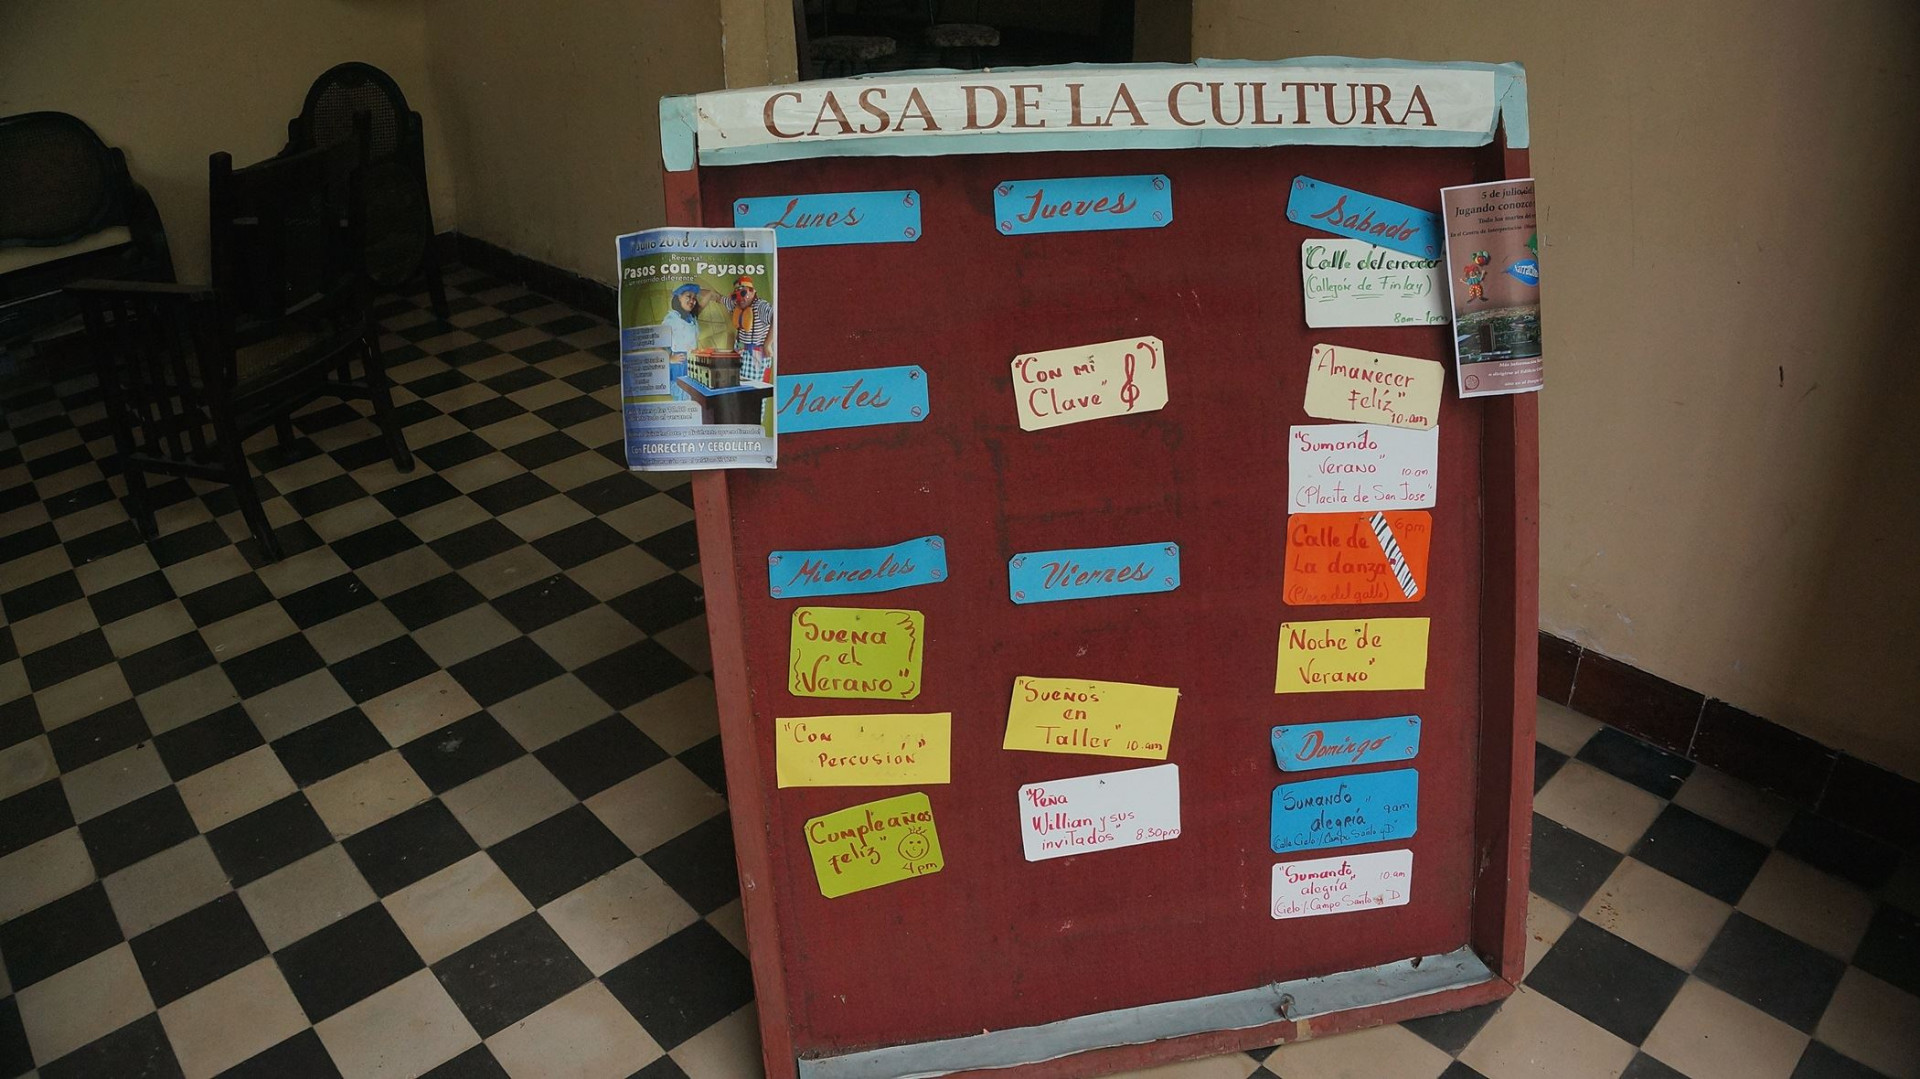 CASA DE LA CULTURA
Lunes
Julio 2016 / 10.00 am
¡Regresa!
Pasos con Payasos
Con FLORECITA Y CEBOLLITA
Martes
Miércoles
"Suena
el
Verano"
"Con
Percusión"
"Cumpleaños
Feliz"
4 pm
Jueves
"Con mi
Clave"
Viernes
"Sueños
en
Taller" 10.am
"Peña
Willian y sus
invitados" 8.30pm
Sábado
"Calle del creador
(Callejón de Finlay)
8am-1pm
"Amanecer
Feliz"
10.am
"Sumando
Verano" 10.am
(Placita de San Jose"
6pm
Calle de
La danza
(Plaza del gallo)
"Noche de
Verano"
Domingo
"Sumando 9am
alegría"
"Sumando 10.am
alegría"
Cielo/-Campo Santo y D
5 de julio
Jugando
Todos los martes